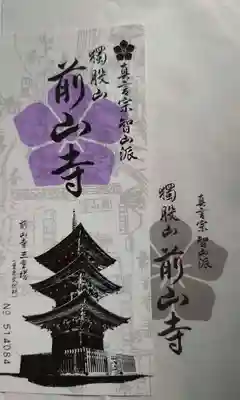 真言宗智山派
獨股山
前山寺
前山寺三重塔
№ 514084
真言宗智山派
獨股山 前山寺